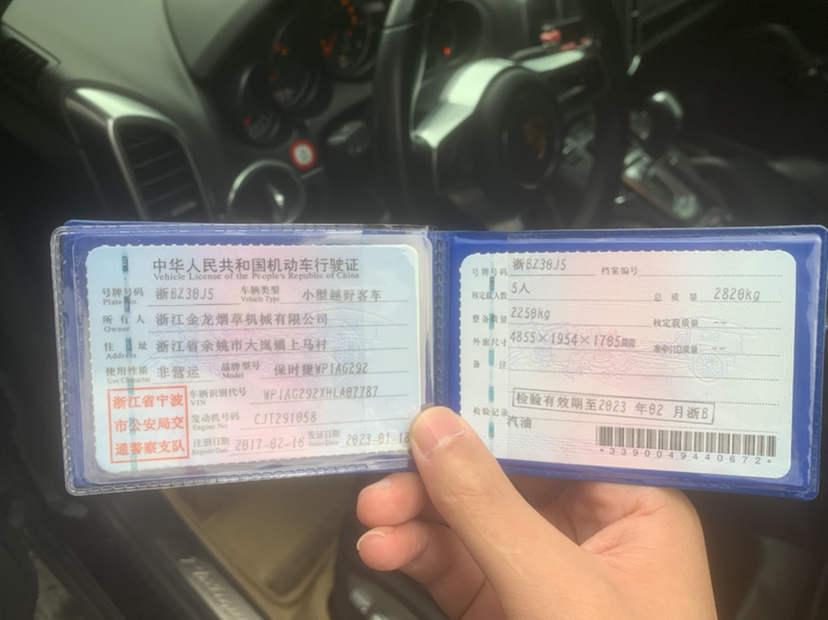 中华人民共和国机动车行驶证
Vehicle License of the People's Republic of China
号牌号码 浙BZ30J5 车辆类型 小型越野客车
Plate No. Vehicle Type
所有人 浙江金龙烟草机械有限公司
Owner
住址 浙江省余姚市大岚镇上马村
Address
使用性质 非营运 品牌型号 保时捷WP1AG292
Use Character Model
浙江省宁波
市公安局交
通警察支队
车辆识别代号 WP1AG292XHLA07787
VIN
发动机号码 CJT291058
Engine No.
注册日期 2017-02-16 发证日期 2023-01-
Register Date Issue Date
号牌号码 浙BZ30J5 档案编号
核定载人数 5人 总质量 2820kg
整备质量 2250kg 核定载质量 --
外廓尺寸 4855×1954×1705mm --
备注
检验有效期至2023年02月浙B
检验记录
汽油
*3390049440672*